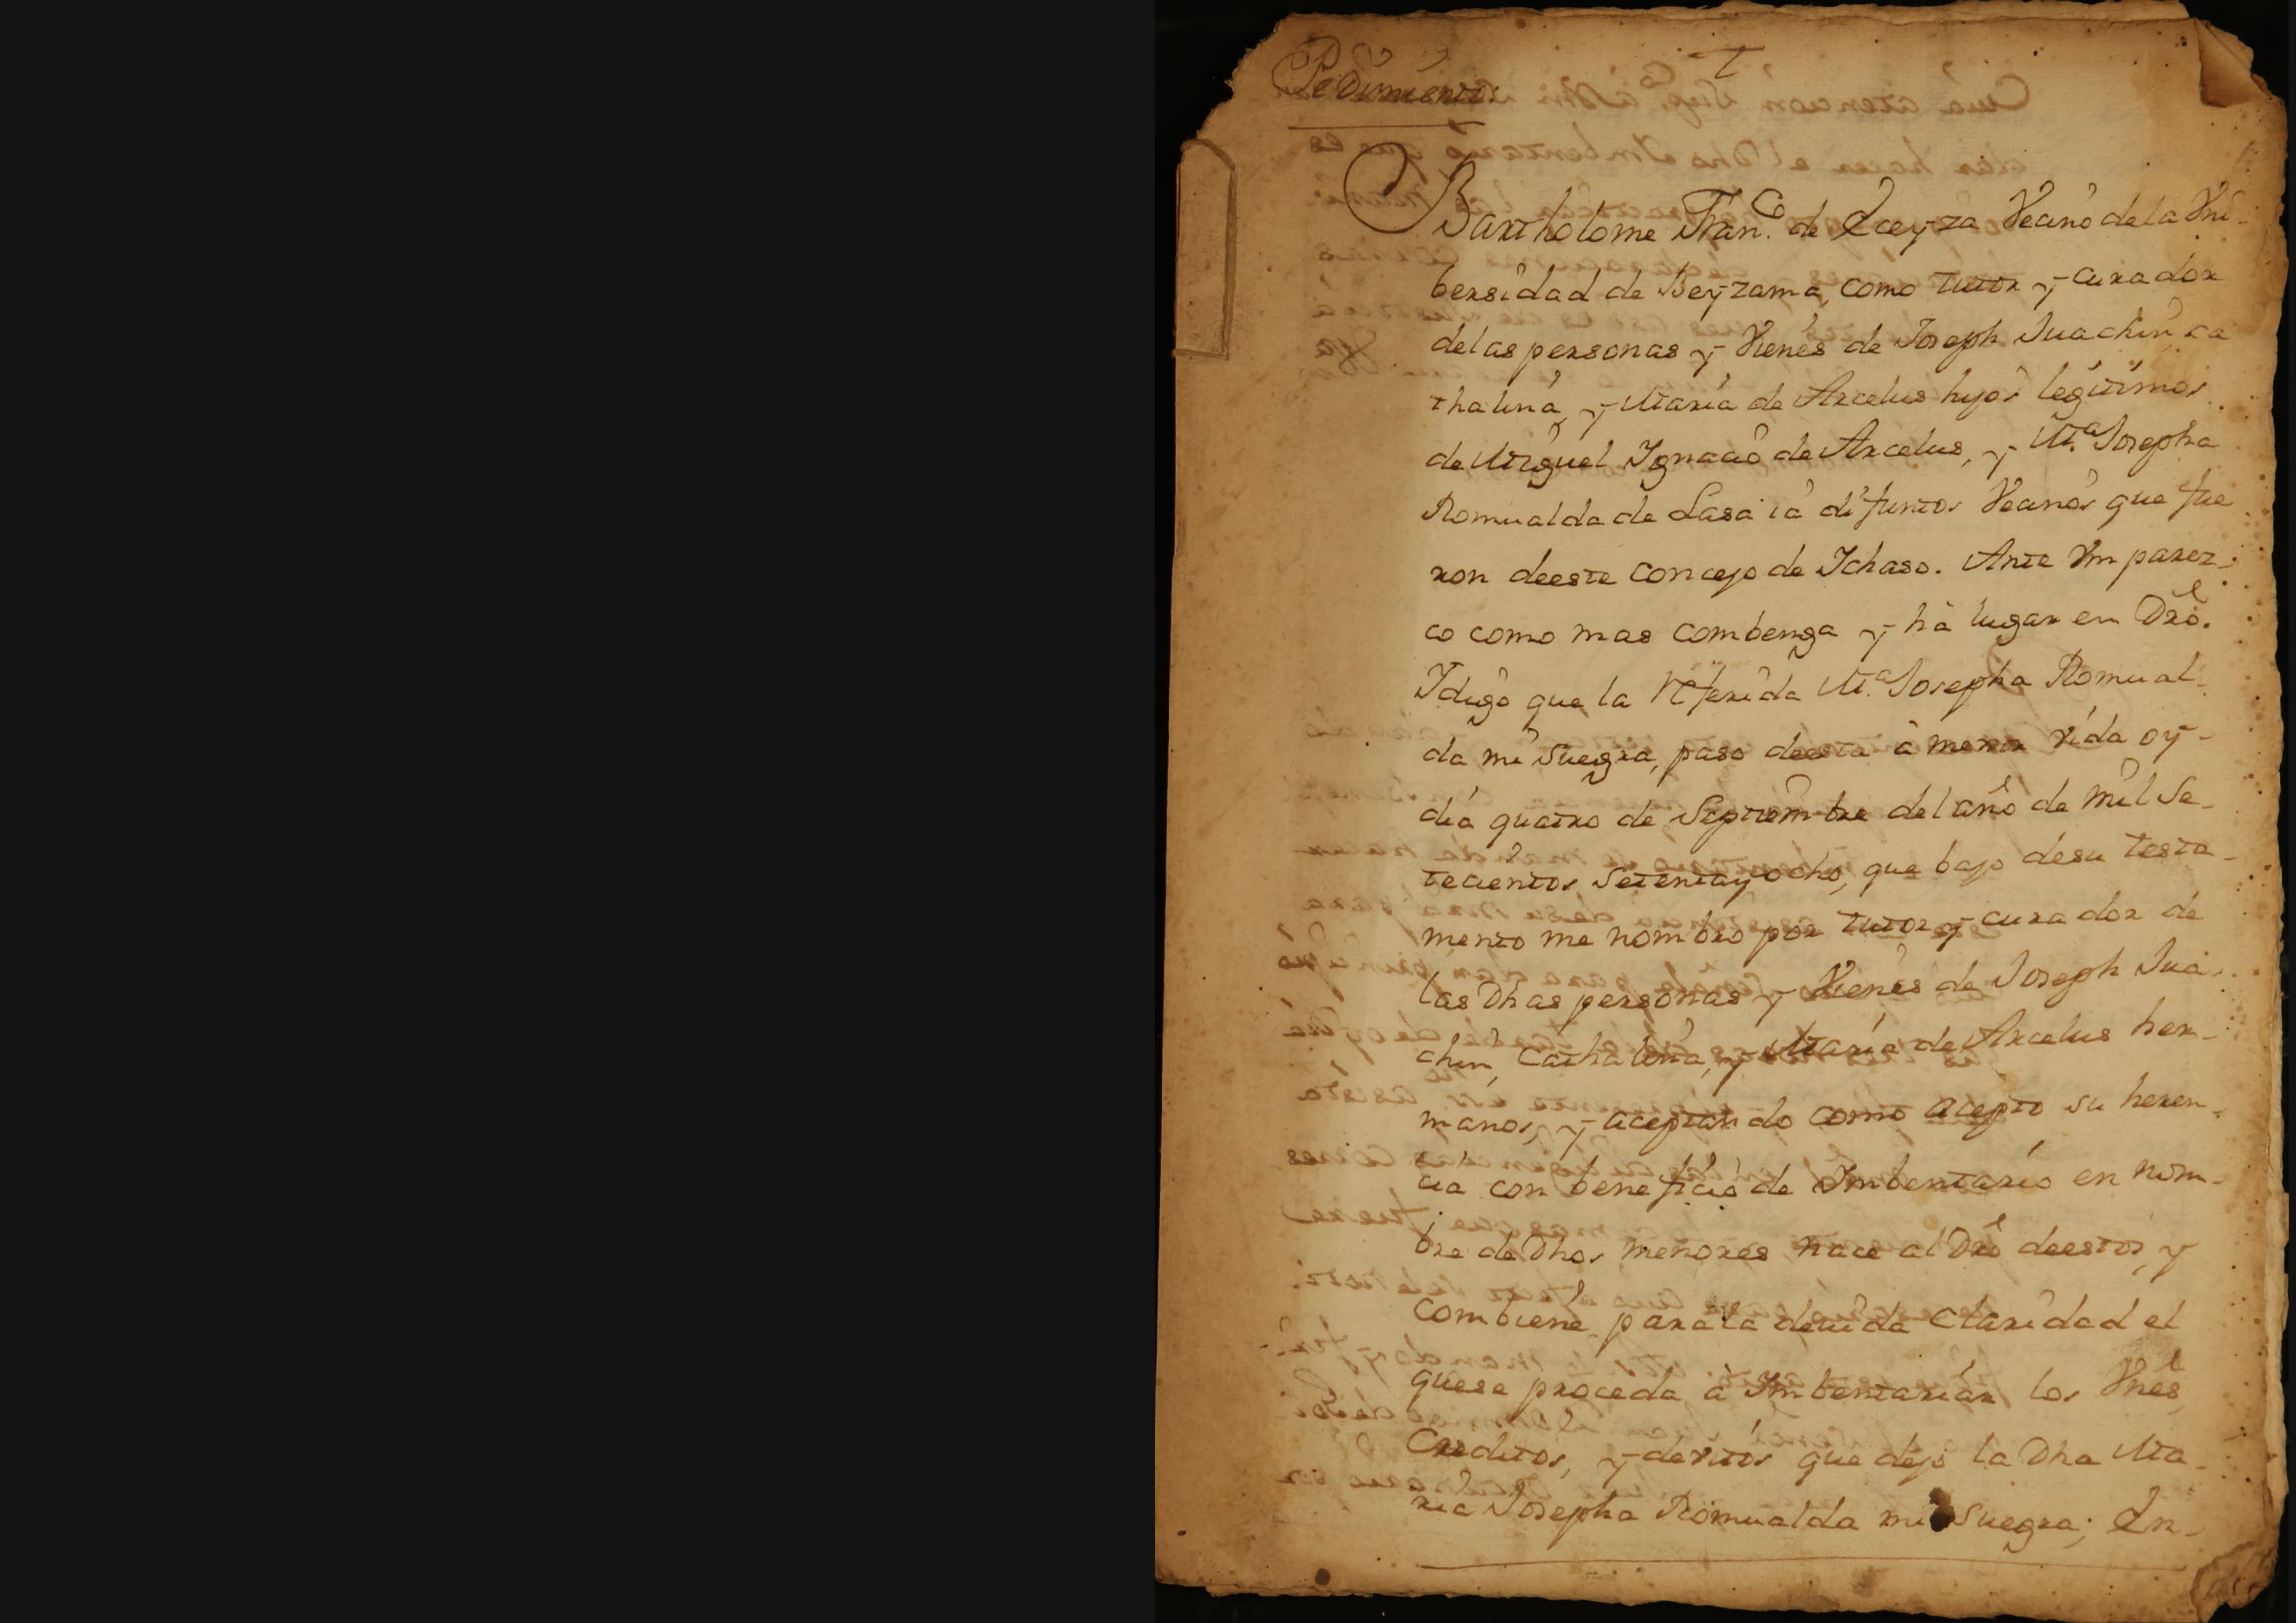 Pedimiento
Bartholome Fran.co de Eceyza Vecino de la Vni-
bersidad de Beyzama, como tutor y curador
de las personas y Vienes de Joseph Juachin, ca
thalina, y Maria de Arcelus hijos legitimos
de Miguel Ignacio de Arcelus, y M.a Josepha
Romualda de Lasa ia difuntos Vecinos que fue
ron de este concejo de Ichaso. Ante Vm parez-
co como mas combenga y hà lugar en Dro.
I digo que la referida M.a Josepha Romual-
da mi suegra, paso de esta à menor vida oy-
dia quatro de Septiembre del año de mil Se-
tecientos Setenta y ocho, que bajo de su testa-
mento me nombro por tutor y curador de
las Dhas personas y Vienes de Joseph Jua-
chin, Cathalina, y Maria de Arcelus her-
manos, y aceptando como acepto su heren-
cia con beneficio de Imbentario en nom-
bre de Dhos menores nace al Dro de estos, y
combiene para la devida claridad el
que se proceda à Imbentariar los Vnes
Creditos, y devitos que dejo la Dha Ma-
ria Josepha Romualda mi suegra; En-